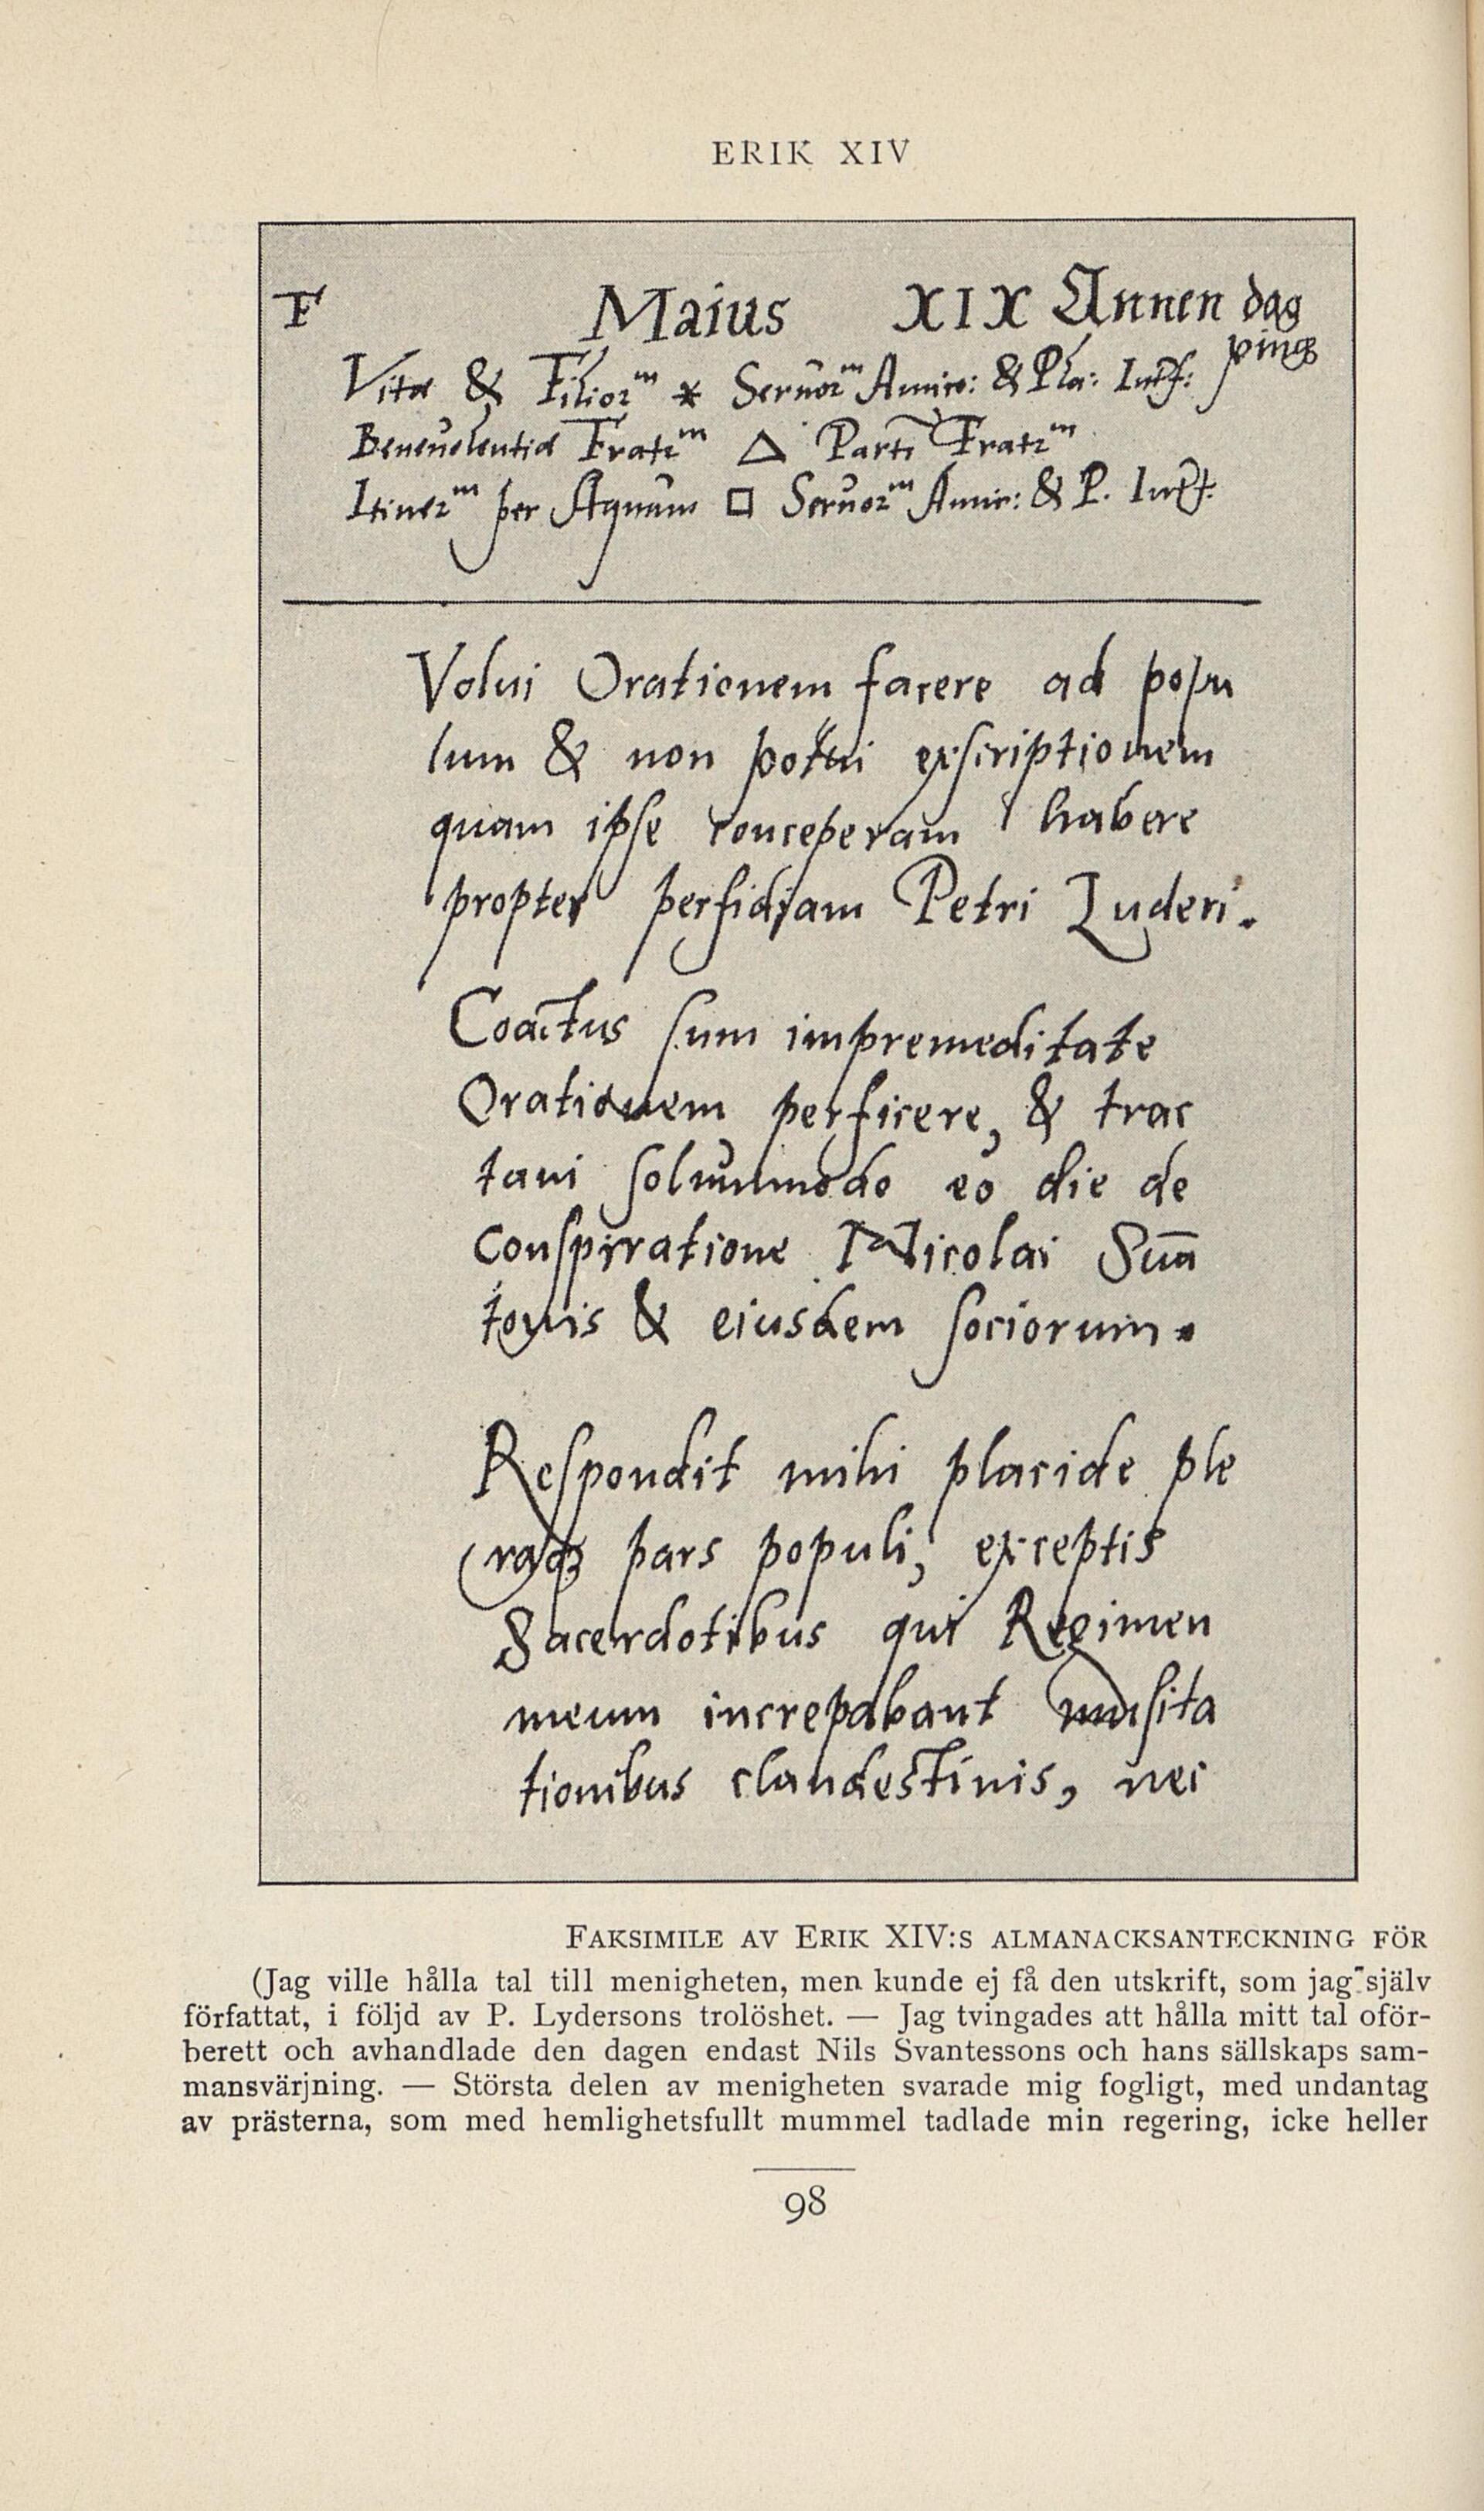 ERIK XIV
F Maius XIX Annen dag
pingꝫ
Vitæ & Filioꝝᵐ * Seruoꝝᵐ Amico: & Pla:
Beneuolentiæ Fratꝝᵐ △ Fratꝝᵐ
Itineꝝᵐ per Aquam □ Seruoꝝᵐ Amic: & P.
Volui Orationem facere ad popu
lum & non potui exscriptionem
quam ipse conceperam habere
propter perfidiam Petri Luderi.
Coactus sum impremeditate
Orationem perficere, & trac
taui solummodo eo die de
Conspiratione Nicolai Suā
tonis & eiusdem sociorum.
Respondit mihi placide ple
raqꝫ pars populi, exceptis
Sacerdotibus qui Regimen
meum increpabant musita
tionibus clandestinis, nec
FAKSIMILE AV ERIK XIV:S ALMANACKSANTECKNING FÖR
(Jag ville hålla tal till menigheten, men kunde ej få den utskrift, som jag själv
författat, i följd av P. Lydersons trolöshet. — Jag tvingades att hålla mitt tal oför-
berett och avhandlade den dagen endast Nils Svantessons och hans sällskaps sam-
mansvärjning. — Största delen av menigheten svarade mig fogligt, med undantag
av prästerna, som med hemlighetsfullt mummel tadlade min regering, icke heller
98